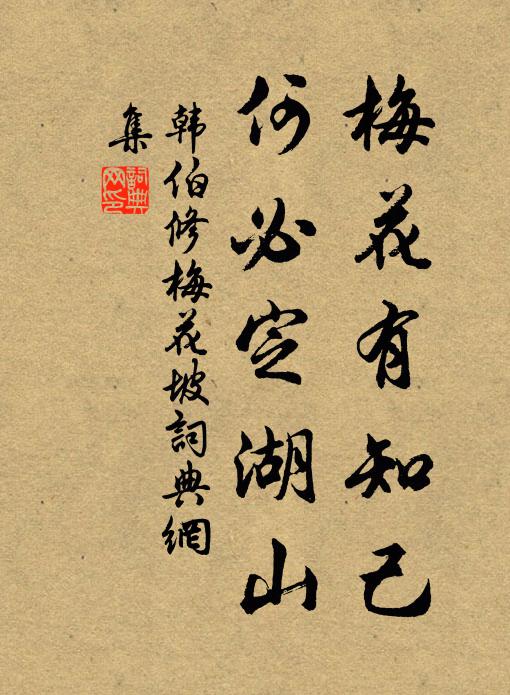 梅花有知己
何必定湖山
韩伯修梅花坡詞典網
集
詞典
网印